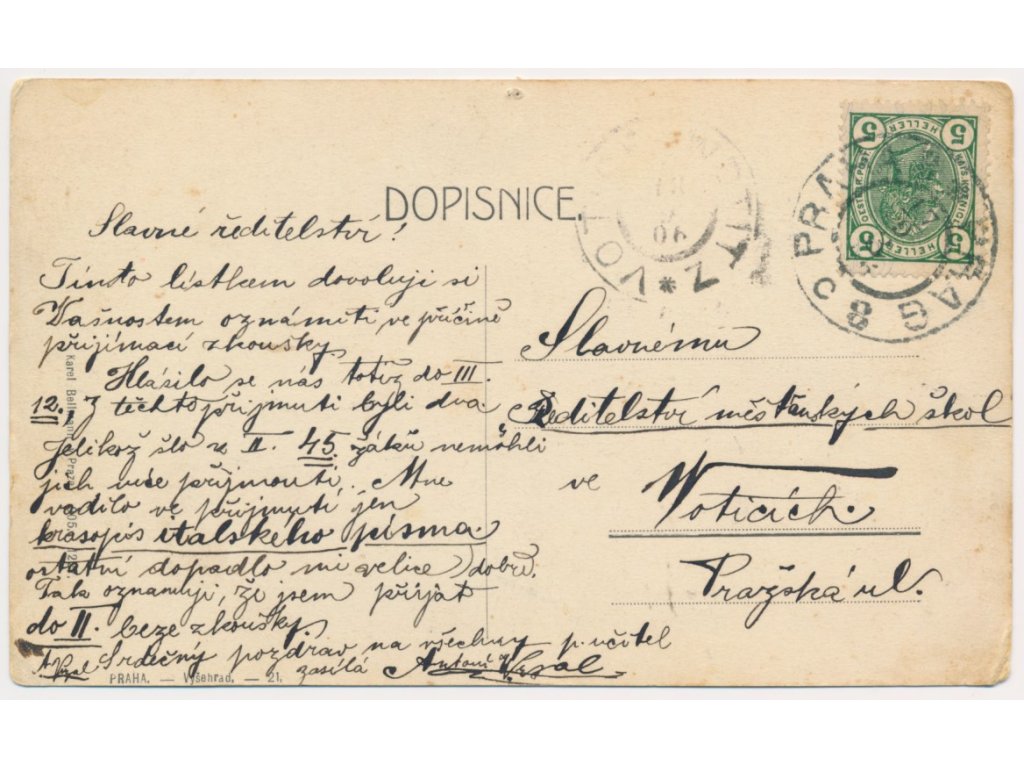 DOPISNICE.
Slavné ředitelství!
Tímto lístkem dovoluji si
Vašnostem oznámiti ve příčině
přijímací zkoušky.
Hlásilo se nás totiž do III.
12. Z těchto přijmuti byli dva
Jelikož šlo z II. 45. žáků nemohli
jich více přijmouti. Mne
vadilo ve přijmutí jen
krasopis italského písma
ostatní dopadlo mi velice dobře.
Tak oznamuji, že jsem přijat
do II. beze zkoušky.
Srdečný pozdrav na všechny p. učitel
zasílá Antonín
Slavnému
Ředitelství městánských škol
ve Woticích.
Pražská ul.
PRAHA. — Vyšehrad. — 21.
Karel
5 HELLER 5
5 HELLER 5
PRAG
8 c
VOT
TZ